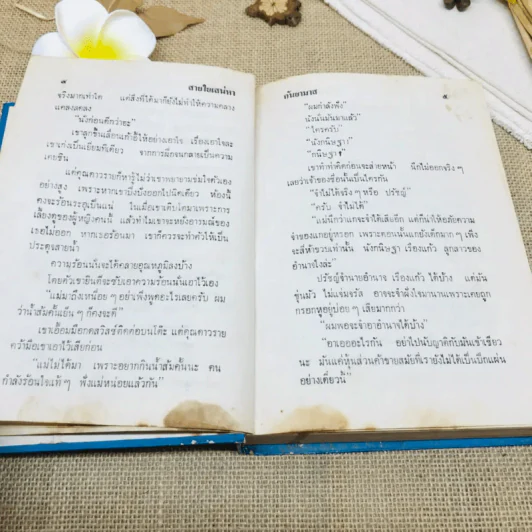 ๔
สายใยเสน่หา
จริงมากเท่าใด แต่สิ่งที่ได้มาก็ยังไม่ทำให้ความคลาง
แคลงลดลง
"นั่งก่อนดีกว่าฮะ"
เขาลุกขึ้นเลื่อนเก้าอี้ให้อย่างเอาใจ เรื่องเอาใจละ
เขาเก่งเป็นเยี่ยมทีเดียว จากการฝึกจนกลายเป็นความ
เคยชิน
แต่คุณดาวรายก็หารู้ไม่ว่าเขาพยายามข่มใจตัวเอง
อย่างสูง เพราะหากเขาบึ่งบึงออกไปนิดเดียว ห้องนี้
คงจะร้อนระอุเป็นแน่ ในเมื่อเขาเติบโตมาเพราะการ
เลี้ยงดูของผู้หญิงคนนี้ แล้วทำไมเขาจะหยั่งอารมณ์ของ
เธอไม่ออก หากเธอร้อนมา เขาก็ควรจะทำตัวให้เป็น
ประดุจสายน้ำ
ความร้อนนั่นจะได้คลายอุณหภูมิลงบ้าง
โดยตัวเขายินดีจะซับเอาความร้อนนั้นเอาไว้เอง
"แม่มาถึงเหนื่อย ๆ อย่าเพิ่งพูดอะไรเลยครับ ผม
ว่าน้ำส้มคั้นเย็น ๆ ก็คงจะดี"
เขาเอื้อมมือกดสวิตซ์ติดต่อบนโต๊ะ แต่คุณดาวราย
คว้ามือเขาเอาไว้เสียก่อน
"แม่ไม่ได้มา เพราะอยากกินน้ำส้มคั้นนะ คน
กำลังร้อนใจแท้ ๆ ฟังแม่หน่อยแล้วกัน"
กันยามาส
๕
"ผมกำลังฟัง"
นังนั่นมันมาแล้ว"
"ใครครับ"
"นังกนิษฐา"
"กนิษฐา"
เขาทำท่าคิดก่อนจะส่ายหน้า นึกไม่ออกจริง ๆ
เลยว่าเจ้าของชื่อนั้นเป็นใครกัน
"จำไม่ได้จริง ๆ หรือ ปรัชญ์"
"ครับ จำไม่ได้"
"แม่นึกว่าแกจะจำได้เสียอีก แต่ก็น่าให้อภัยความ
จำของแกอยู่หรอก เพราะตอนนั้นแกยังเด็กมาก ๆ เพิ่ง
จะสี่ห้าขวบเท่านั้น นังกนิษฐา เรืองแก้ว ลูกสาวของ
อำนาจไงล่ะ"
ปรัชญ์จำนายอำนาจ เรืองแก้ว ได้บ้าง แต่มัน
ขุ่นมัว ไม่แจ่มจรัส อาจจะจำฝังใจมานานเพราะเคยถูก
กรอกหูอยู่บ่อย ๆ เสียมากกว่า
"ผมพอจะจำอาอำนาจได้บ้าง"
"อาเออะไรกัน อย่าไปนับญาติกับมันเข้าเชียว
นะ มันแค่หุ้นส่วนค้าขายสมัยที่เรายังไม่ได้เป็นปึกแผ่น
อย่างเดี๋ยวนี้"